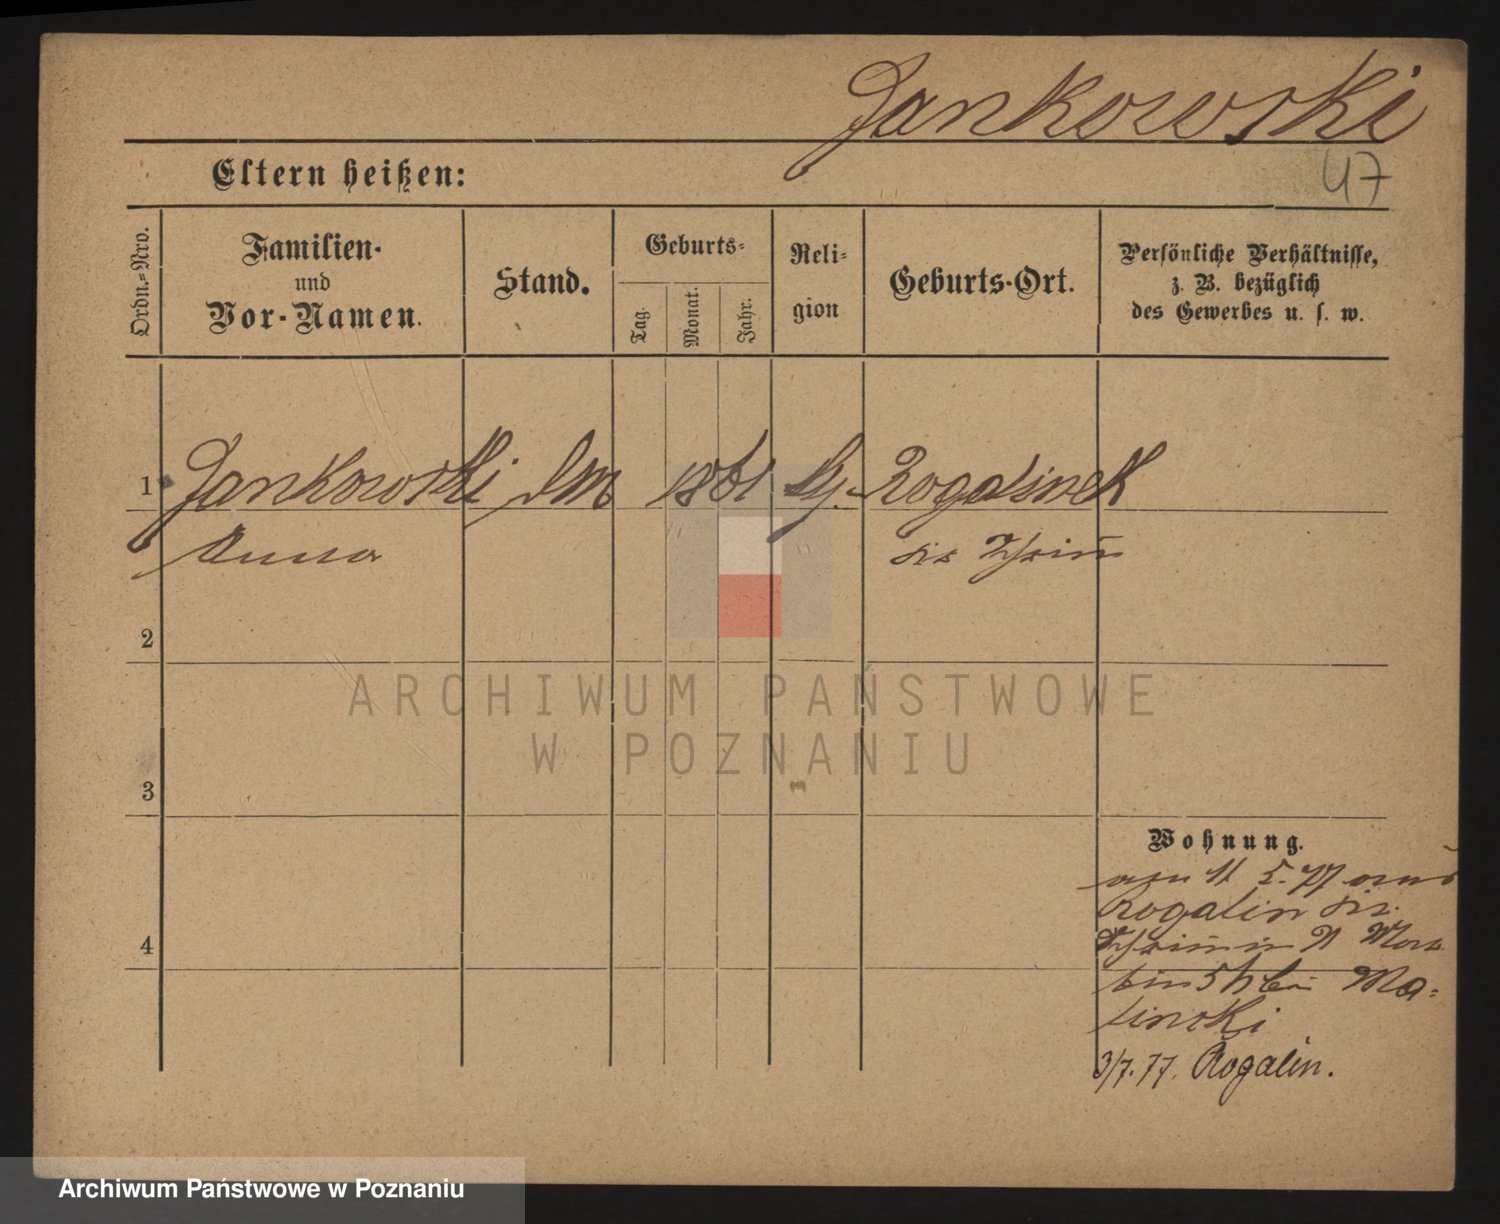 Jankowski
47
Eltern heißen:
Ordn.-Nro.
Familien-
und
Vor-Namen.
Stand.
Geburts-
Tag.
Monat.
Jahr.
Reli-
gion
Geburts-Ort.
Persönliche Verhältnisse,
z. B. bezüglich
des Gewerbes u. s. w.
1
Jankowski 1861 Rogalinek
Anna Schrim
2
ARCHIWUM PAŃSTWOWE
W POZNANIU
3
Wohnung.
5. 77 aus
Rogalin
Schrim
4
Ma-
linski
3/7. 77. Rogalin.
Archiwum Państwowe w Poznaniu